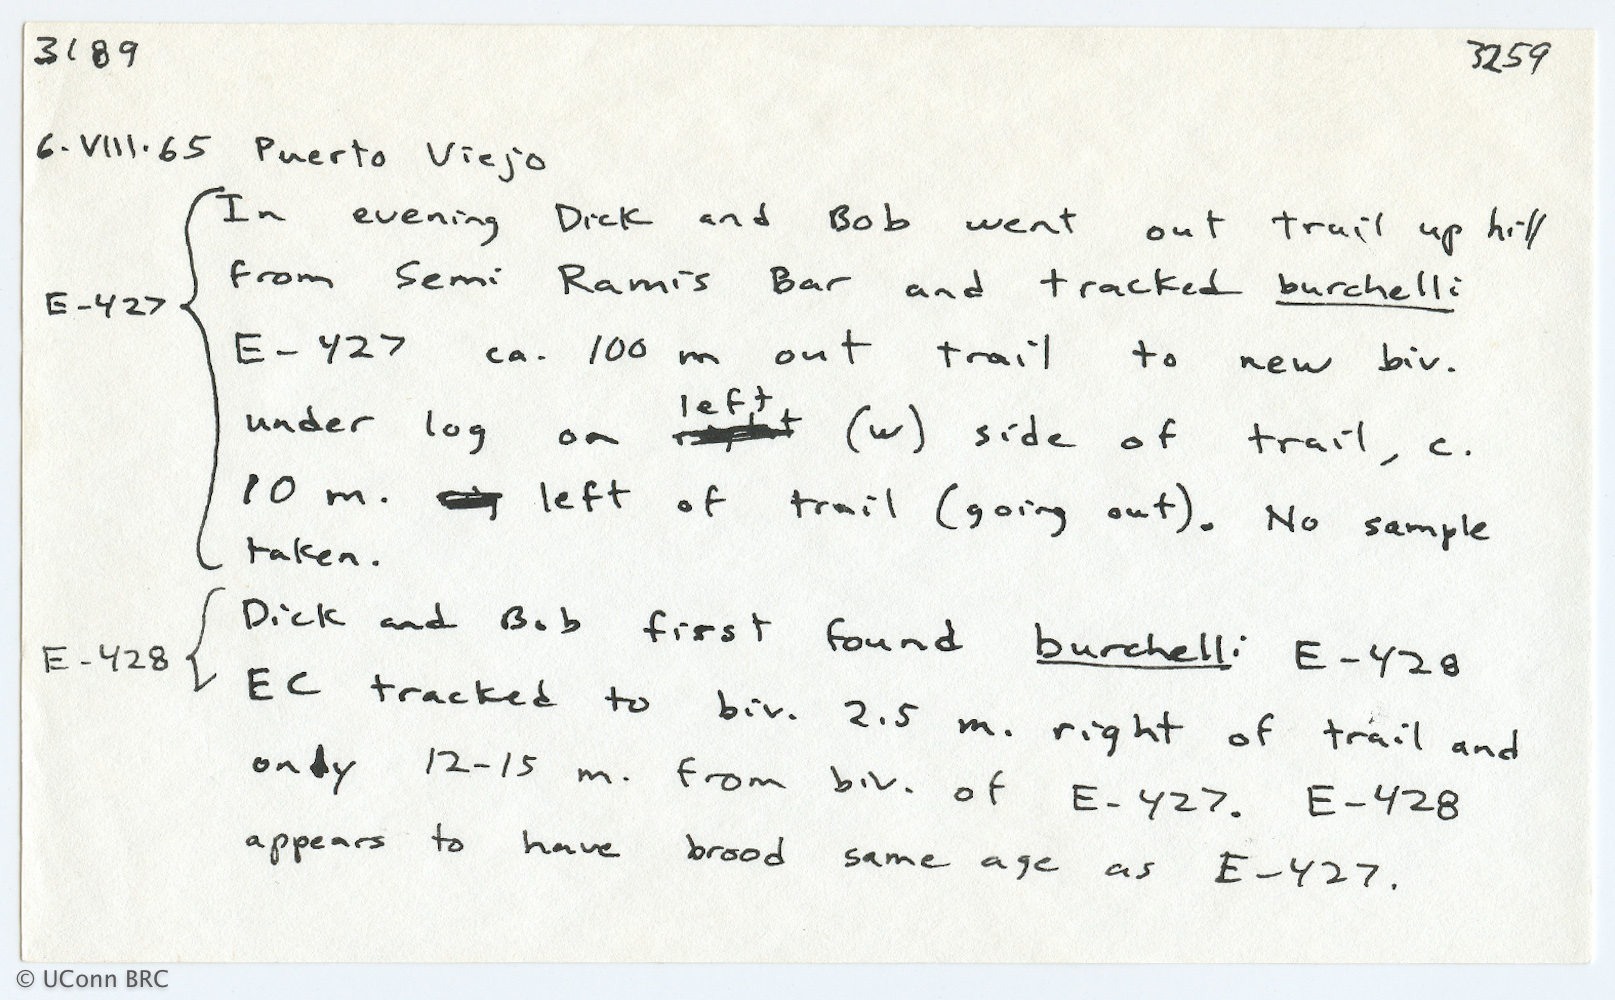 3189 3259
6.VIII.65 Puerto Viejo
In evening Dick and Bob went out trail up hill
from Semi Ramis Bar and tracked burchelli
E-427
E-427 ca. 100 m out trail to new biv.
left
under log on right (w) side of trail, c.
10 m. left of trail (going out). No sample
taken.
Dick and Bob first found burchelli E-428
E-428
EC tracked to biv. 2.5 m. right of trail and
only 12-15 m. from biv. of E-427. E-428
appears to have brood same age as E-427.
© UConn BRC